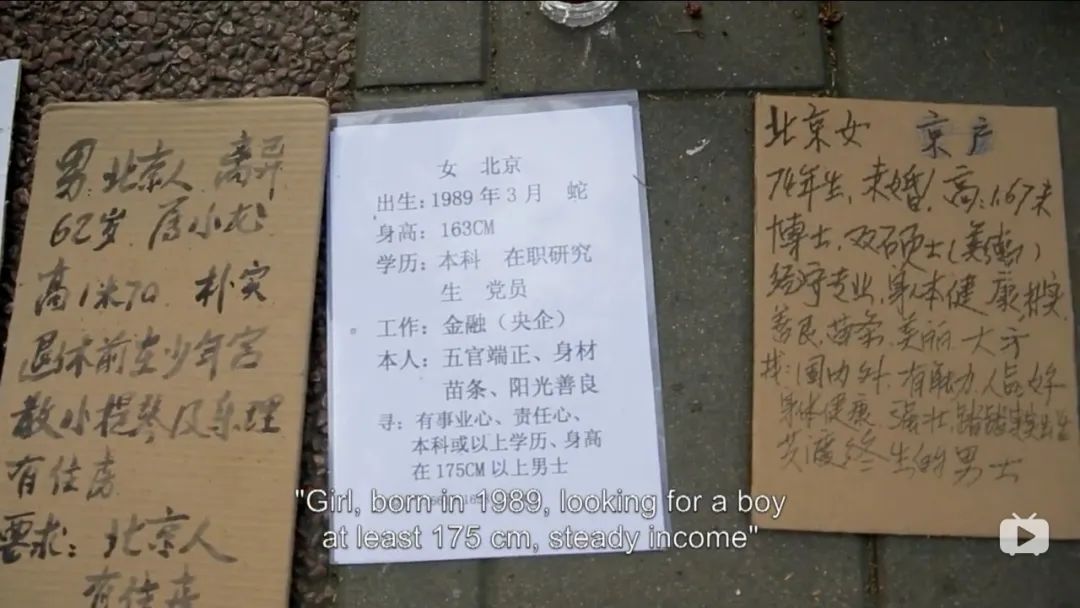 男 北京人 离异
62岁 属小龙
高1米70 朴实
退休前在少年宫
教小提琴及乐理
有住房
要求：北京人
有住
女 北京
出生：1989年3月 蛇
身高：163CM
学历：本科 在职研究
生 党员
工作：金融（央企）
本人：五官端正、身材
苗条、阳光善良
寻：有事业心、责任心、
本科或以上学历、身高
在175CM以上男士
北京女 京户
74年生，未婚，高：1.67米
博士，双硕士
经济专业，身体健康 朴实
善良 苗条 美丽 大方
找：国内外 有能力 人品好
身体健康 强壮 踏踏实实
共渡终生的男士
"Girl, born in 1989, looking for a boy
at least 175 cm, steady income"